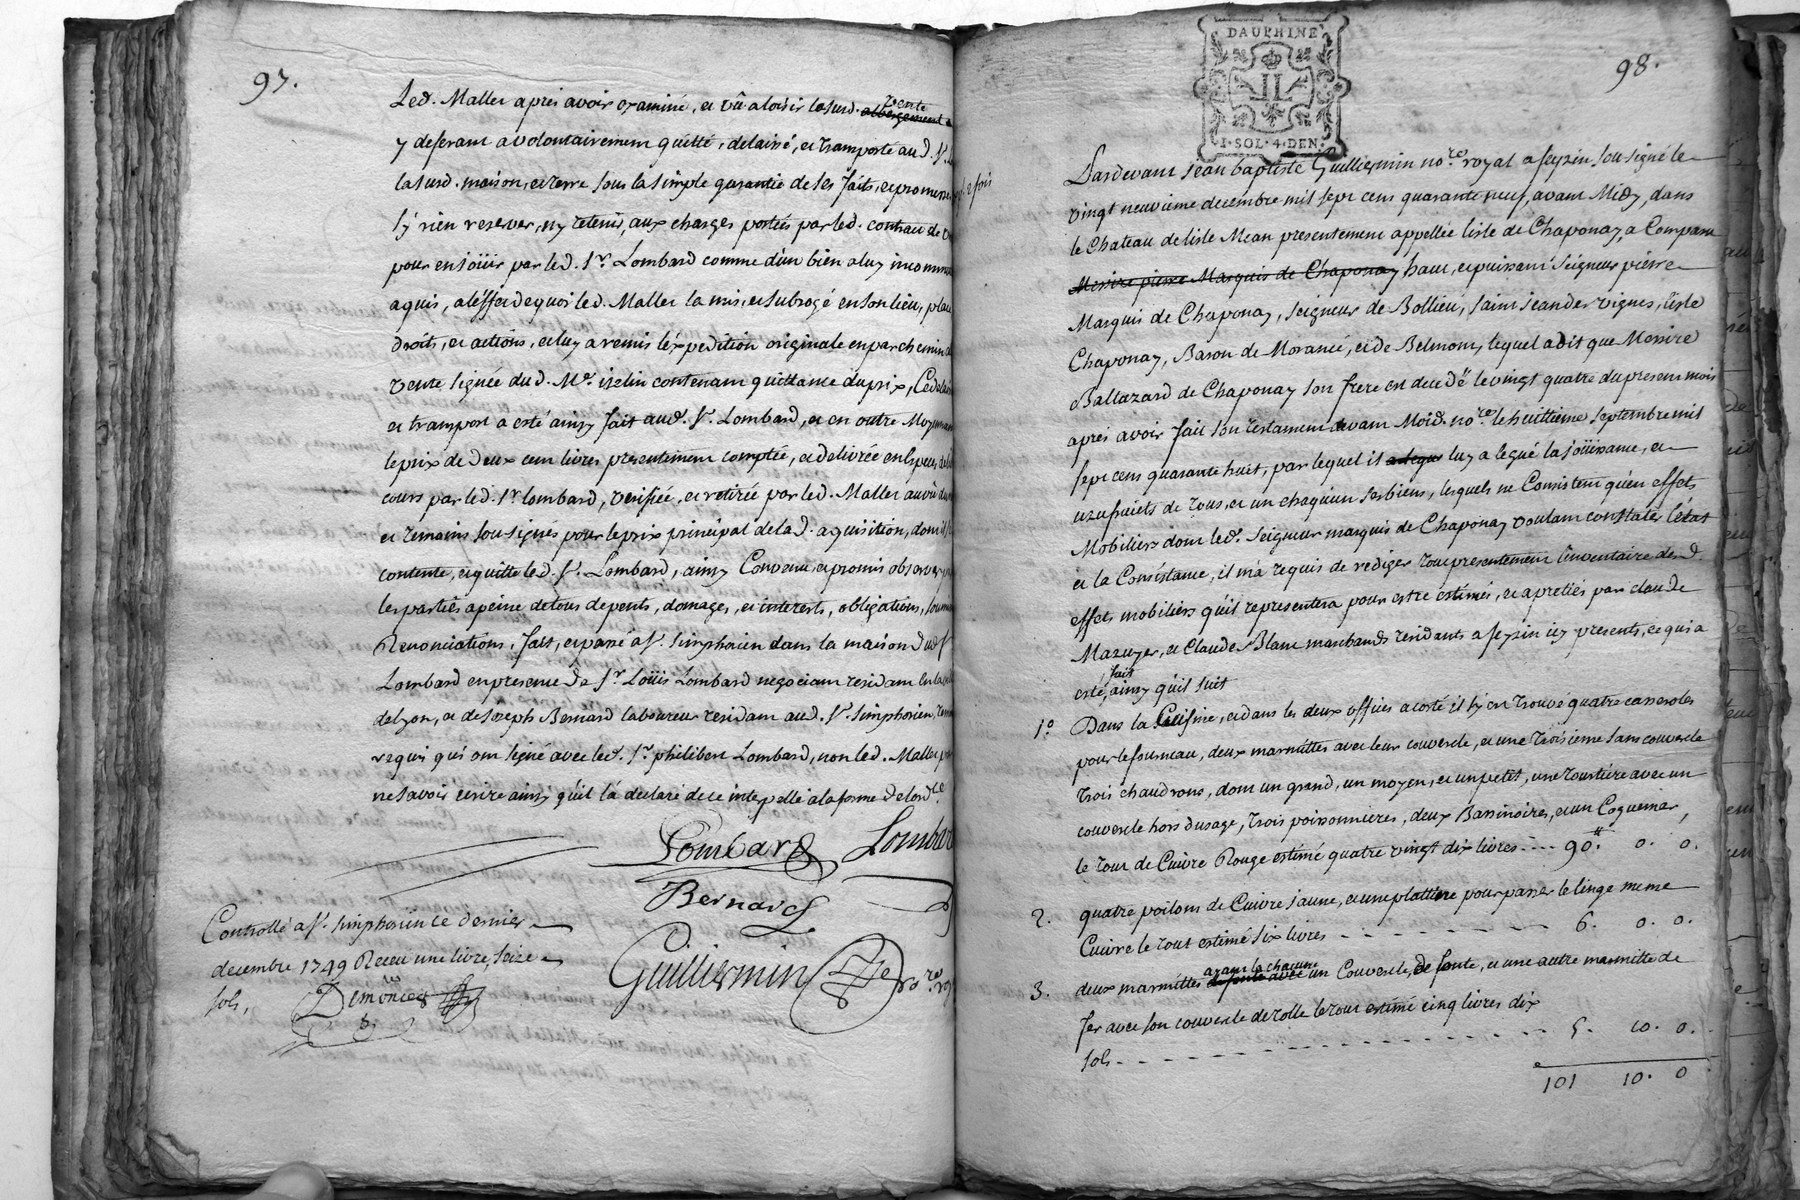 97.
Led. Maller aprés avoir examiné, et vû a loisir lasusd. vente albergement
y deferant a volontairement quitté, delaissé, et transporté aud. Sr.
lasusd. maison, et terre sous la simple garantie de ses faits, et promesses
s'y rien reserver, ny retenir, aux charges portées par led. contract de
pour en joüir par led. Sr. Lombard comme d'un bien a luy incommu
aquis, a l'éffet de quoi led. Maller la mis, et subrogé en son lieu, place
droits, et actions, et luy a remis léxpedition originale en parchemin
vente signée dud. Me. izelin contenant quittance du prix, Ce delaiss
et transport a esté ainsy fait aud. Sr. Lombard, et en outre moyennant
le prix de deux cent livres presentement comptée, et delivrée en Especes
cours par led. Sr lombard, verifiée, et retirée par led. Maller au vû
et temoins sousignés pour le prix principal de lad. aquisition, dont il
contente, et quitte led. Sr. Lombard, ainsy Convenu, et promis observer
les parties a peine de tous depents, domages, et interests, obligations, soumi
Renonciations, fait, et passé a St. Simphorien dans la maison dud Sr
Lombard en presence de Sr. Loüis Lombard negociant residant en la
de lyon, et de Joseph Bernard laboureur residant aud. St. Simphorien,
requis qui ont signé avec led. Sr. philibert Lombard, non led. Maller
ne savoir ecrire ainsy qu'il l'a declaré de ce interpellé a la forme de lordce
Lombard Lombard
Bernard
Guilliermin
no.re roy
Controllé a St. Simphorien le dernier
decembre 1749 Receu une livre, seize
sols,
Demonies
DAUPHINE
1·SOL·4·DEN.
98.
Pardevant Jean baptiste Guilliermin no.re royal a feyzin sousigné le
vingt neuvieme decembre mil sept cens quarante neuf, avant Midy, dans
le Chateau de lisle Mean presentement appellée lisle de Chaponay, a Comparu
Messire pierre Marquis de Chaponay haut, et puissant Seigneur pierre
Marquis de Chaponay, Seigneur de Bollieu, saint Jean des vignes, l'isle
Chaponay, Baron de Morancé, et de Belmont, lequel a dit que Messire
Baltazard de Chaponay son frere est decedé le vingt quatre du present mois
aprés avoir fait son testament devant Moid. no.re le huittieme Septembre mil
sept cens quarante huit, par lequel il a legué luy a legué la Joüissance, et
uzufruiets de tous, et un chaquun ses biens, lesquels ne Consistent qu'en effets
Mobiliers dont led. Seigneur marquis de Chaponay voulant constater l'état
et la Consistance, il m'a requis de rediger tout presentement l'inventaire desd.
effets mobiliers qu'il representera pour estre estimés, et apretiés par claude
Mazuyer, et Claude Blanc marchands residants a feyzin icy presents, ce qui a
esté, fait ainsy qu'il suit
1º. Dans la Cuisine, et dans les deux offices a costé il s'y est trouvé quatre casseroles
pour le fourneau, deux marmittes avec leur couvercle, et une troisieme sans couvercle
trois chaudrons, dont un grand, un moyen, et un petit, une tourtiere avec un
couvercle hors d'usage, trois poissonnieres, deux Bassinoires, et un Coquemar,
le tout de Cuivre Rouge estimé quatre vingt dix livres ---- 90.# 0. 0.
2. quatre poilons de Cuivre jaune, et une plattine pour passer le linge meme
Cuivre le tout estimé six livres - - - - - - - 6. 0. 0.
3. deux marmittes de fonte avec ayant la chacune un Couvercle, de fonte, et une autre marmitte de
fer avec son couvercle de tolle le tout estimé cinq livres dix
sols - - - - - - - - - - - - - - - 5. 10. 0.
101 10. 0